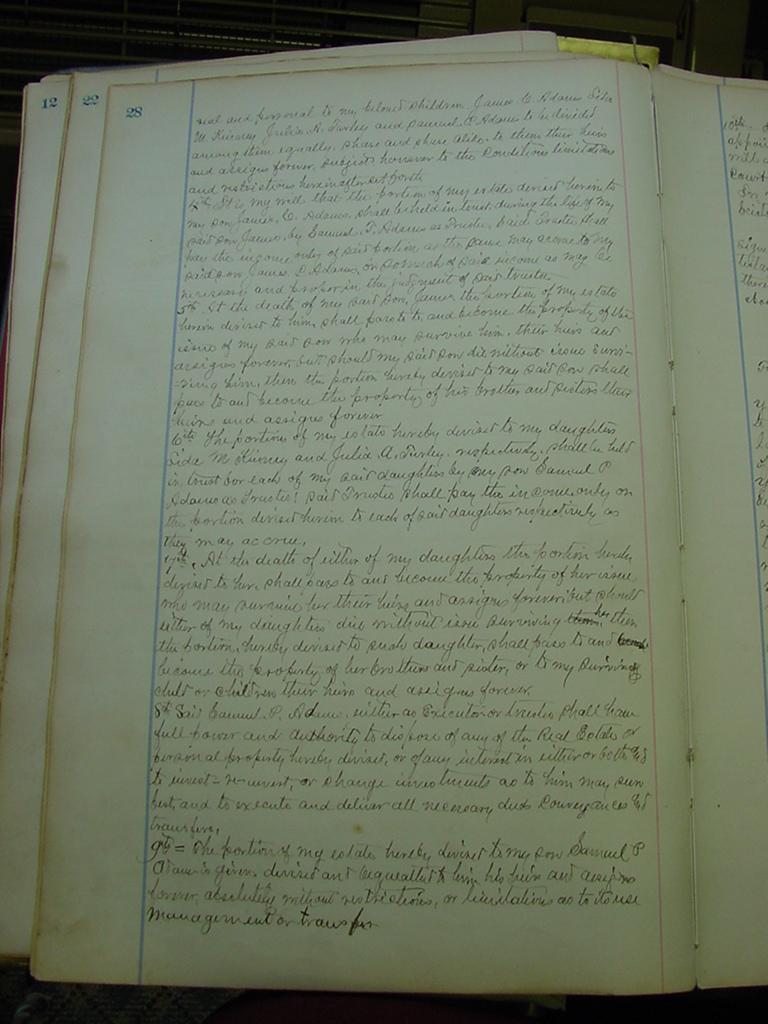 12
22
28
real and personal to my beloved children James C. Adams Lida
M. Kinney Julia A. Turley and Samuel P. Adams to be divided
among them equally. share and share alike. to them their heirs
and assigns forever, subject however to the Conditions limitations
and restrictions hereinafter set forth
4th It is my will that the portion of my estate devised herein to
my son James, C. Adams. shall be held in trust during the life of my
said son James, by Samuel. P. Adams as Trustee. Said Trustee shall
the income only of said portion as the same may accrue to my
said son James C Adams, or so much of said income as may be
necessary and proper in the judgment of said trustee.
5th. At the death of my said son, James the portion of my estate
herein devised to him, shall pass to and become the property of the
issue of my said son who may survive him, their heirs and
assigns forever, but should my said son die without issue survi-
=ving him, then the portion hereby devised to my said son shall
pass to and become the property of his brother and sisters their
heirs and assigns forever
6th The portions of my estate hereby devised to my daughters
Lida M. Kinney and Julia, A. Turley. respectively. shall be held
in trust for each of my said daughters by my son Samuel P
Adams as Trustee: said Trustee shall pay the income only on
the portion devised herein to each of said daughters respectively as
they may accrue,
7th. At the death of either of my daughters the portion hereby
devised to her. shall pass to and become the property of her issue
who may survive her their heirs and assigns forever: but should
either of my daughters die without issue surviving her, then
the portion, hereby devised to such daughter, shall pass to and
become the property of her brothers and sister, or to my surviving
child or children their heirs and assigns forever.
8th Said Samuel. P. Adams. either as Executor or trustee shall have
full power and authority to dispose of any of the Real Estate or
personal property hereby devised, or of any interest in either or both and
to invest = re-invest, or change investments as to him may seem
best, and to execute and deliver all necessary deeds Conveyances and
transfers,
9th = The portion of my estate hereby devised to my son Samuel P
Adams is given devised and bequeathed to him his heirs and assigns
forever, absolutely without restrictions, or limitations as to its use
management or transfer
10th
appoi
will a
Court